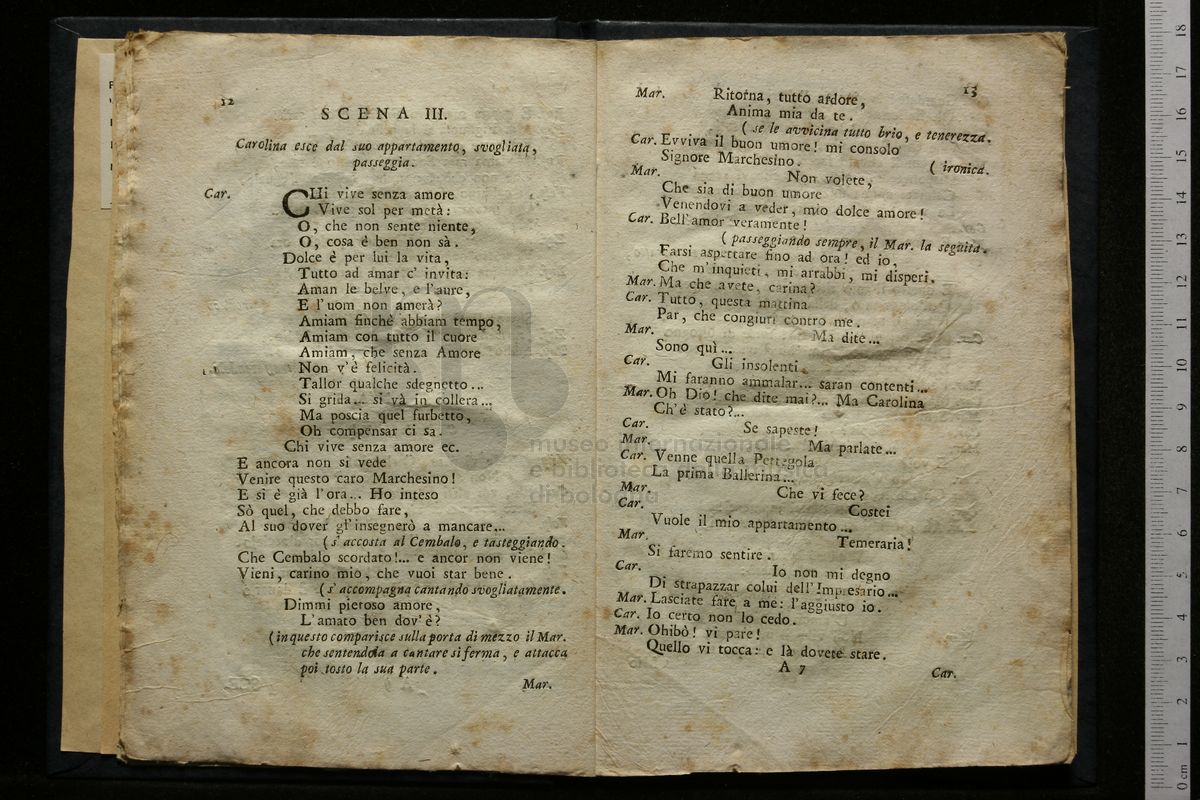 12
SCENA III.
Carolina esce dal suo appartamento, svogliata,
passeggia.
Car. CHi vive senza amore
Vive sol per metà:
O, che non sente niente,
O, cosa è ben non sà.
Dolce è per lui la vita,
Tutto ad amar c' invita:
Aman le belve, e l'aure,
E l'uom non amerà?
Amiam finchè abbiam tempo,
Amiam con tutto il cuore
Amiam, che senza Amore
Non v'è felicità.
Tallor qualche sdegnetto...
Si grida... si và in collera...
Ma poscia quel furbetto,
Oh compensar ci sa.
Chi vive senza amore ec.
E ancora non si vede
Venire questo caro Marchesino!
E si è già l'ora... Ho inteso
Sò quel, che debbo fare,
Al suo dover gl'insegnerò a mancare...
(s'accosta al Cembalo, e tasteggiando.
Che Cembalo scordato!... e ancor non viene!
Vieni, carino mio, che vuoi star bene.
(s'accompagna cantando svogliatamente.
Dimmi pietoso amore,
L'amato ben dov'è?
(in questo comparisce sulla porta di mezzo il Mar.
che sentendola a cantare si ferma, e attacca
poi tosto la sua parte.
Mar.
13
Mar. Ritorna, tutto ardore,
Anima mia da te.
(se le avvicina tutto brio, e tenerezza.
Car. Evviva il buon umore! mi consolo
Signore Marchesino. (ironica.
Mar. Non volete,
Che sia di buon umore
Venendovi a veder, mio dolce amore!
Car. Bell'amor veramente!
(passeggiando sempre, il Mar. la seguita.
Farsi aspettare fino ad ora! ed io,
Che m'inquieti, mi arrabbi, mi disperi.
Mar. Ma che avete, carina?
Car. Tutto, questa mattina
Par, che congiuri contro me.
Mar. Ma dite...
Sono quì...
Car. Gli insolenti
Mi faranno ammalar... saran contenti...
Mar. Oh Dio! che dite mai?... Ma Carolina
Ch'è stato?...
Car. Se sapeste!
Mar. Ma parlate...
Car. Venne quella Pettegola
La prima Ballerina...
Mar. Che vi fece?
Car. Costei
Vuole il mio appartamento...
Mar. Temeraria!
Si faremo sentire.
Car. Io non mi degno
Di strapazzar colui dell'Impresario...
Mar. Lasciate fare a me: l'aggiusto io.
Car. Io certo non lo cedo.
Mar. Ohibò! vi pare!
Quello vi tocca: e là dovete stare.
A 7
Car.
museo internazionale
e biblioteca della musica
di bologna
0 cm 1 2 3 4 5 6 7 8 9 10 11 12 13 14 15 16 17 18